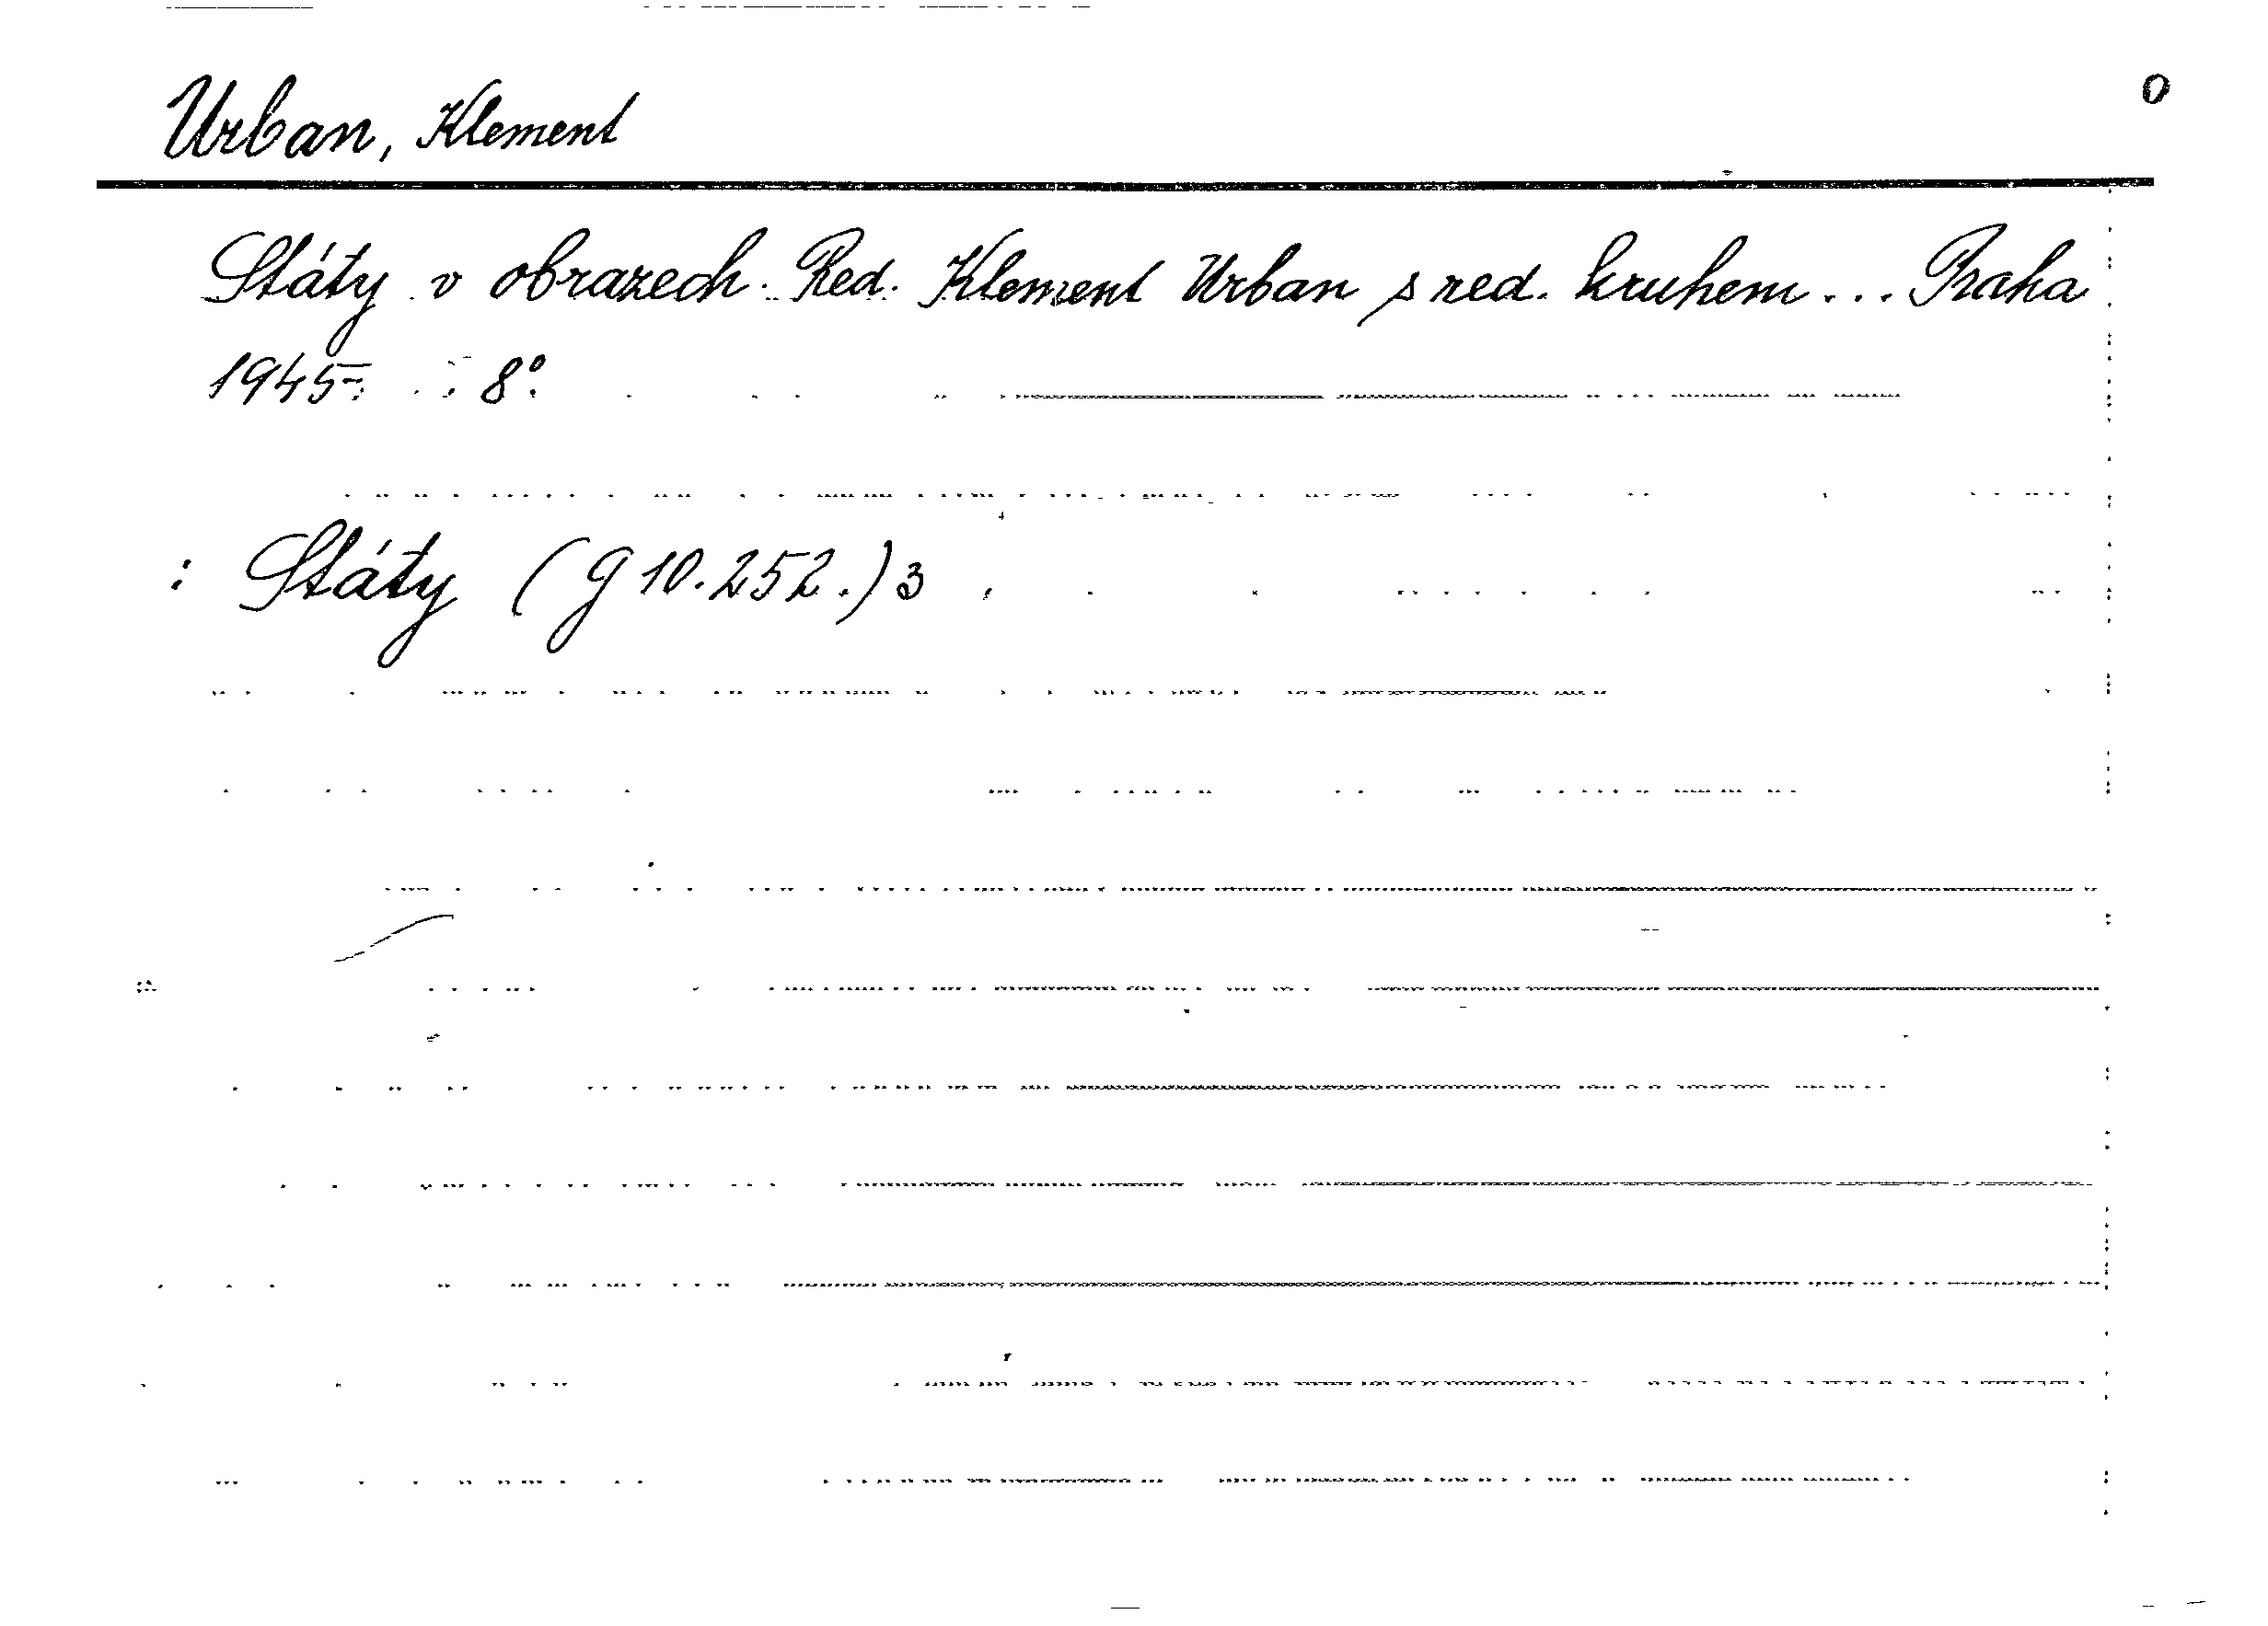 O
Urban, Klement
Státy v obrazech. Red. Klement Urban s red. kruhem... Praha
1945- 8°.
: Státy (G 10.252.)3